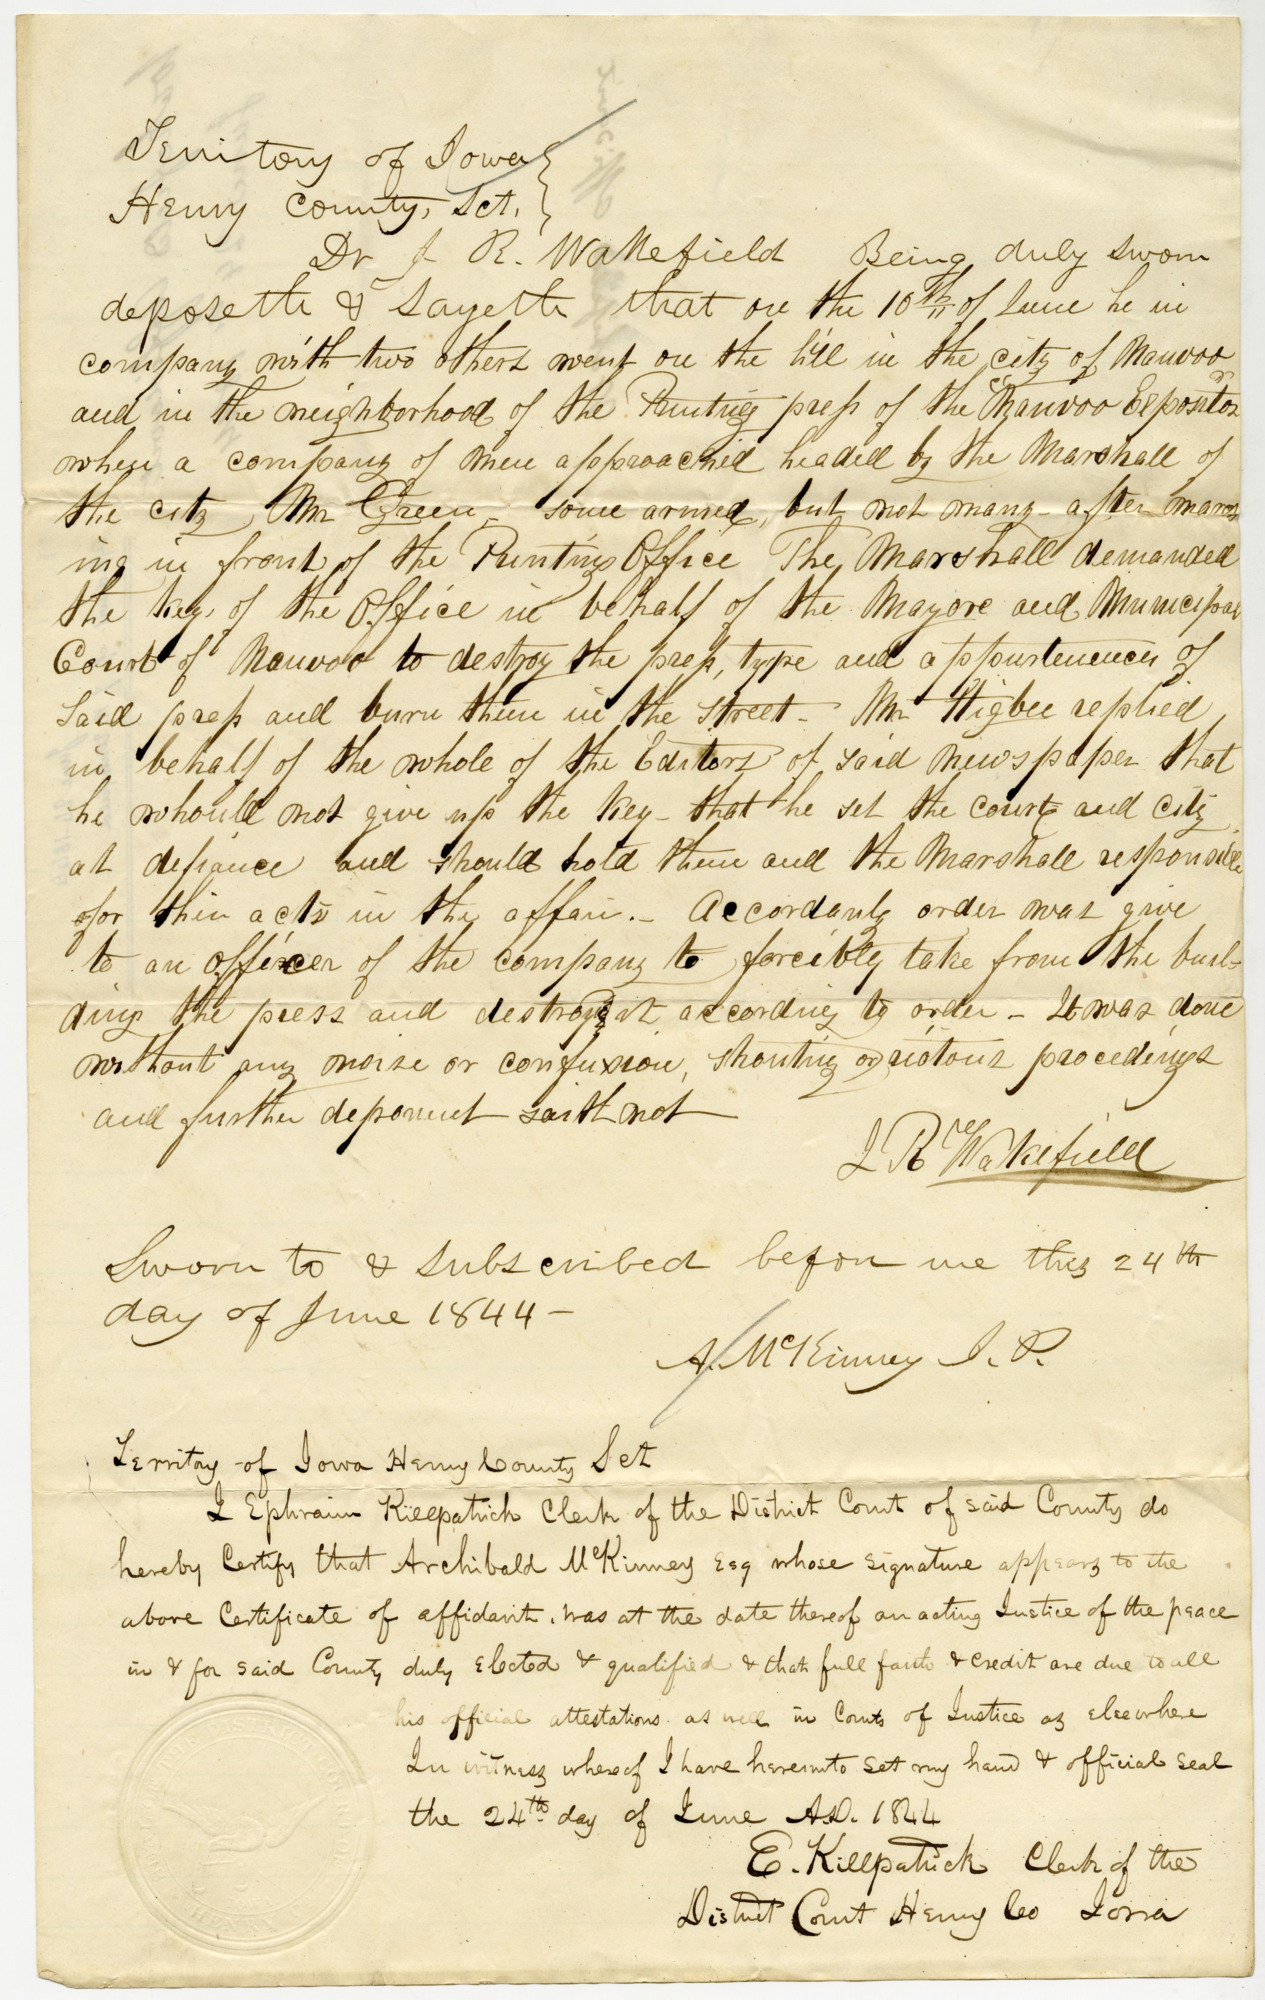 Territory of Iowa }
Henry County, Sct. }
Dr J. R. Wakefield Being duly sworn
deposeth & Sayeth that on the 10th of June he in
company with two others went on the hill in the city of Nauvoo
and in the neighborhood of the Printing press of the "Nauvoo Expositor"
when a company of men approached headed by the Marshall of
the city Mr Green - some armed, but not many - after
ing in front of the Printing Office The Marshall demanded
the key of the Office in behalf of the Mayore and Municipal
Court of Nauvoo to destroy the press, type and appurtenences of
said press and burn them in the street - Mr Higbee replied
in behalf of the whole of the Editors of said Newspaper that
he whould not give up the key - that he set the court and city
at defiance and should hold them and the Marshall responsible
for their acts in the affair. - Accordanly order was give
to an officer of the company to forcibly take from the buil-
ding the press and destroy it according to order - It was done
without any noise or confusion, shouting or riotous procedings
and further deponent saith not
J R Wakefield
Sworn to & subscribed before me this 24th
day of June 1844 -
A. McKinney J. P.
Territory of Iowa Henry County Sct
I Ephraim Killpatrick Clerk of the District Court of said County do
hereby Certify that Archibald McKinney Esq whose signature appears to the
above Certificate of affidavit, was at the date thereof an acting Justice of the peace
in & for said County duly elected & qualified & that full faith & credit are due to all
his official attestations as well in Courts of Justice as elsewhere
In witness whereof I have hereunto set my hand & official seal
the 24th day of June A.D. 1844
E. Killpatrick Clerk of the
District Court Henry Co Iowa